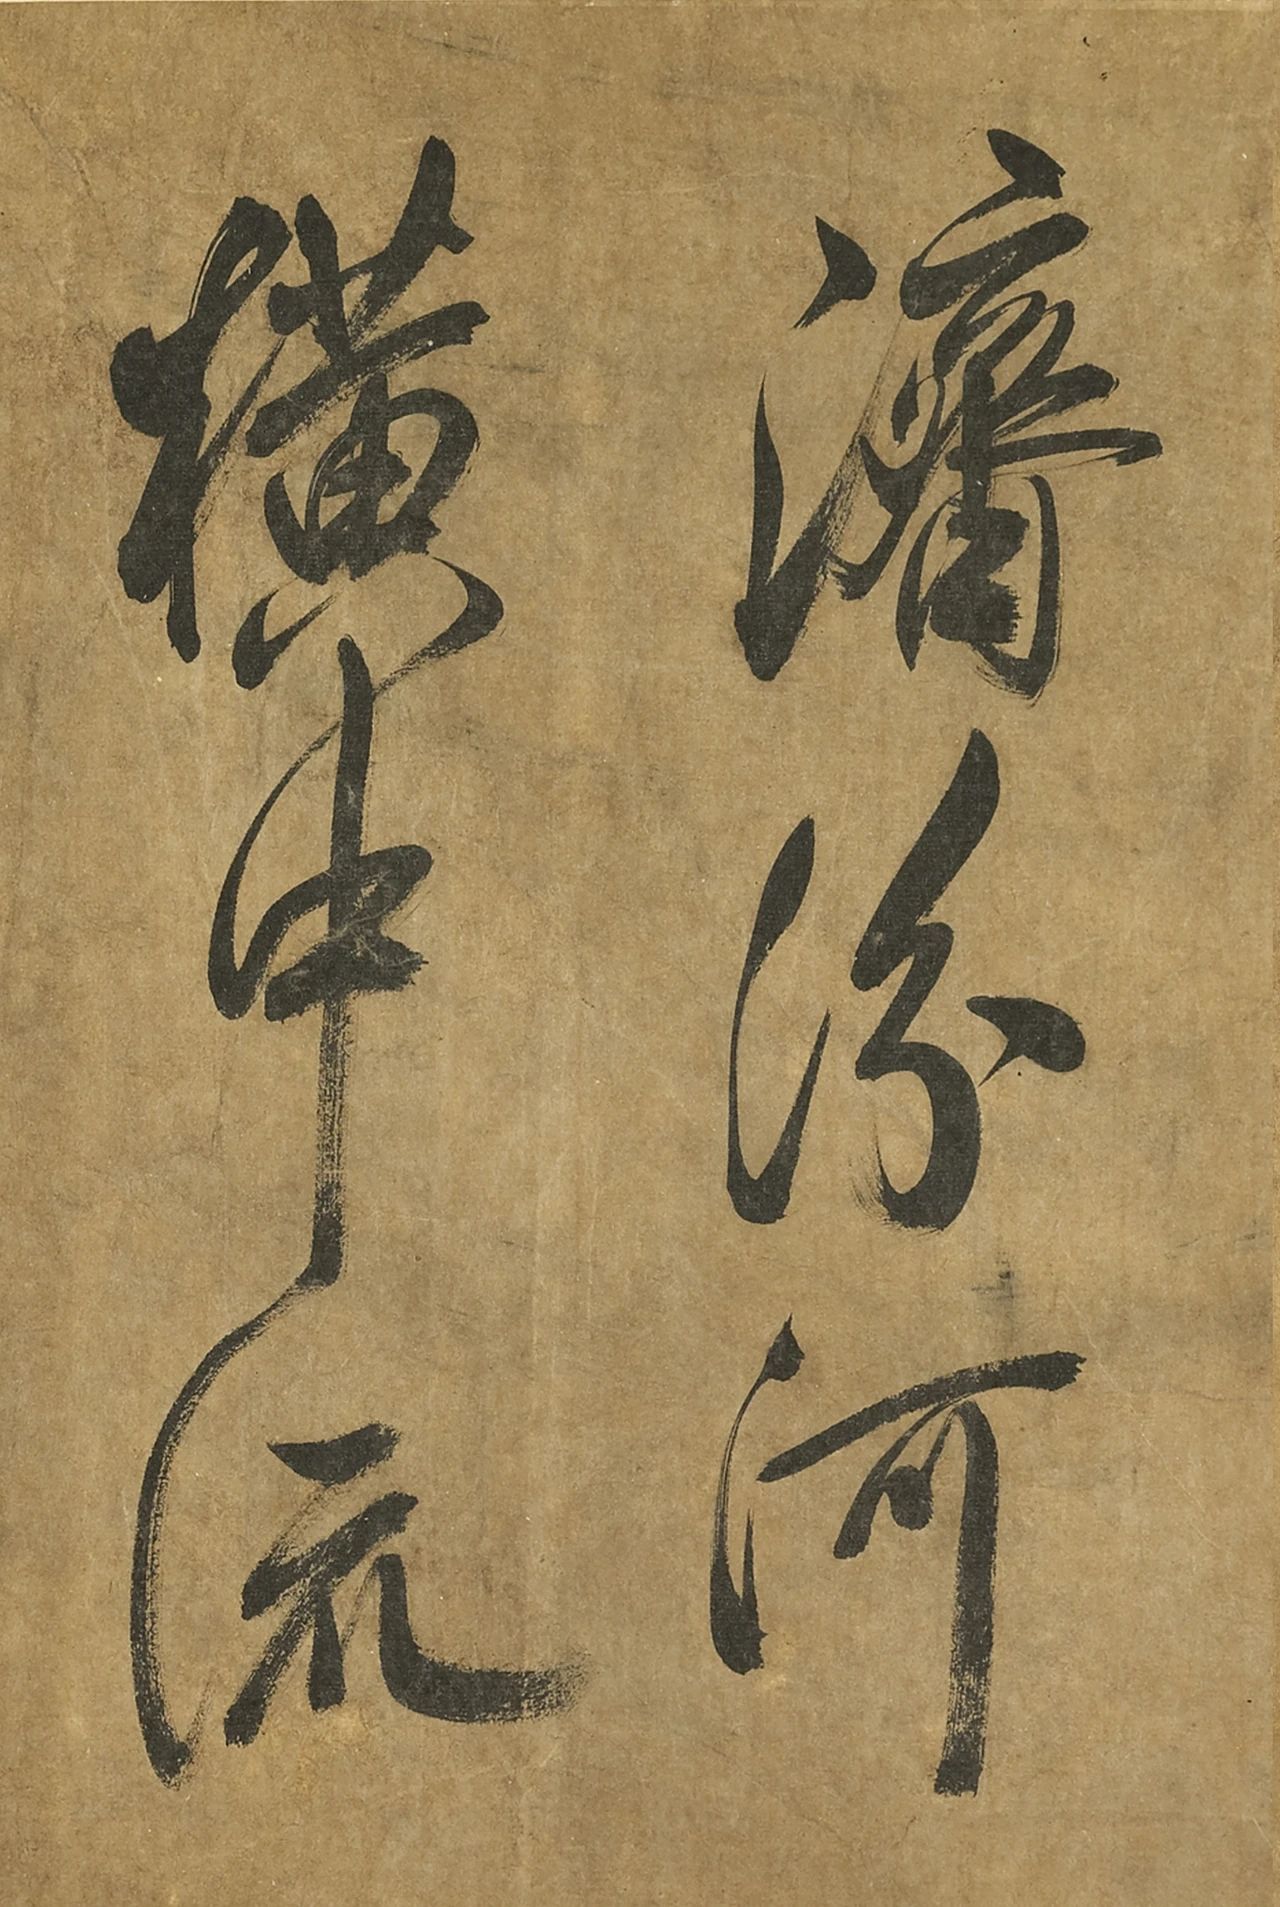 濟汾河
橫中流